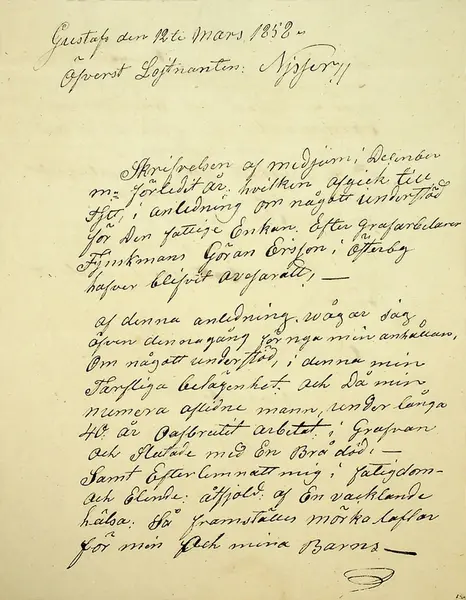 Gustafs den 12te Mars 1852.
Öfverst Lojtnanten: Nisser,,
Skrifvelsen af medjum i Desember
m= förledit år, hvilken afgick till
i anledning om någått understöd
för Den fattige Enkan. Efter Grafarbetaren
Göran Ersson i Österby
hafver blifvit
af denna anledning. vågar jag
även denna gång förnya min anhållan,
Om någått understöd, i denna min
Tarfliga belägenhet. och Då min
numera aflidne mann, under långa
40: år Oafbrutit arbetat i Grufvan
och Slutade med En Brå död, —
Samt Efterlemnatt mig i fatigdom-
och Elende: åtföljd af En vacklande
hälsa. Så framställes mörka taflor
för min och mina Barns —